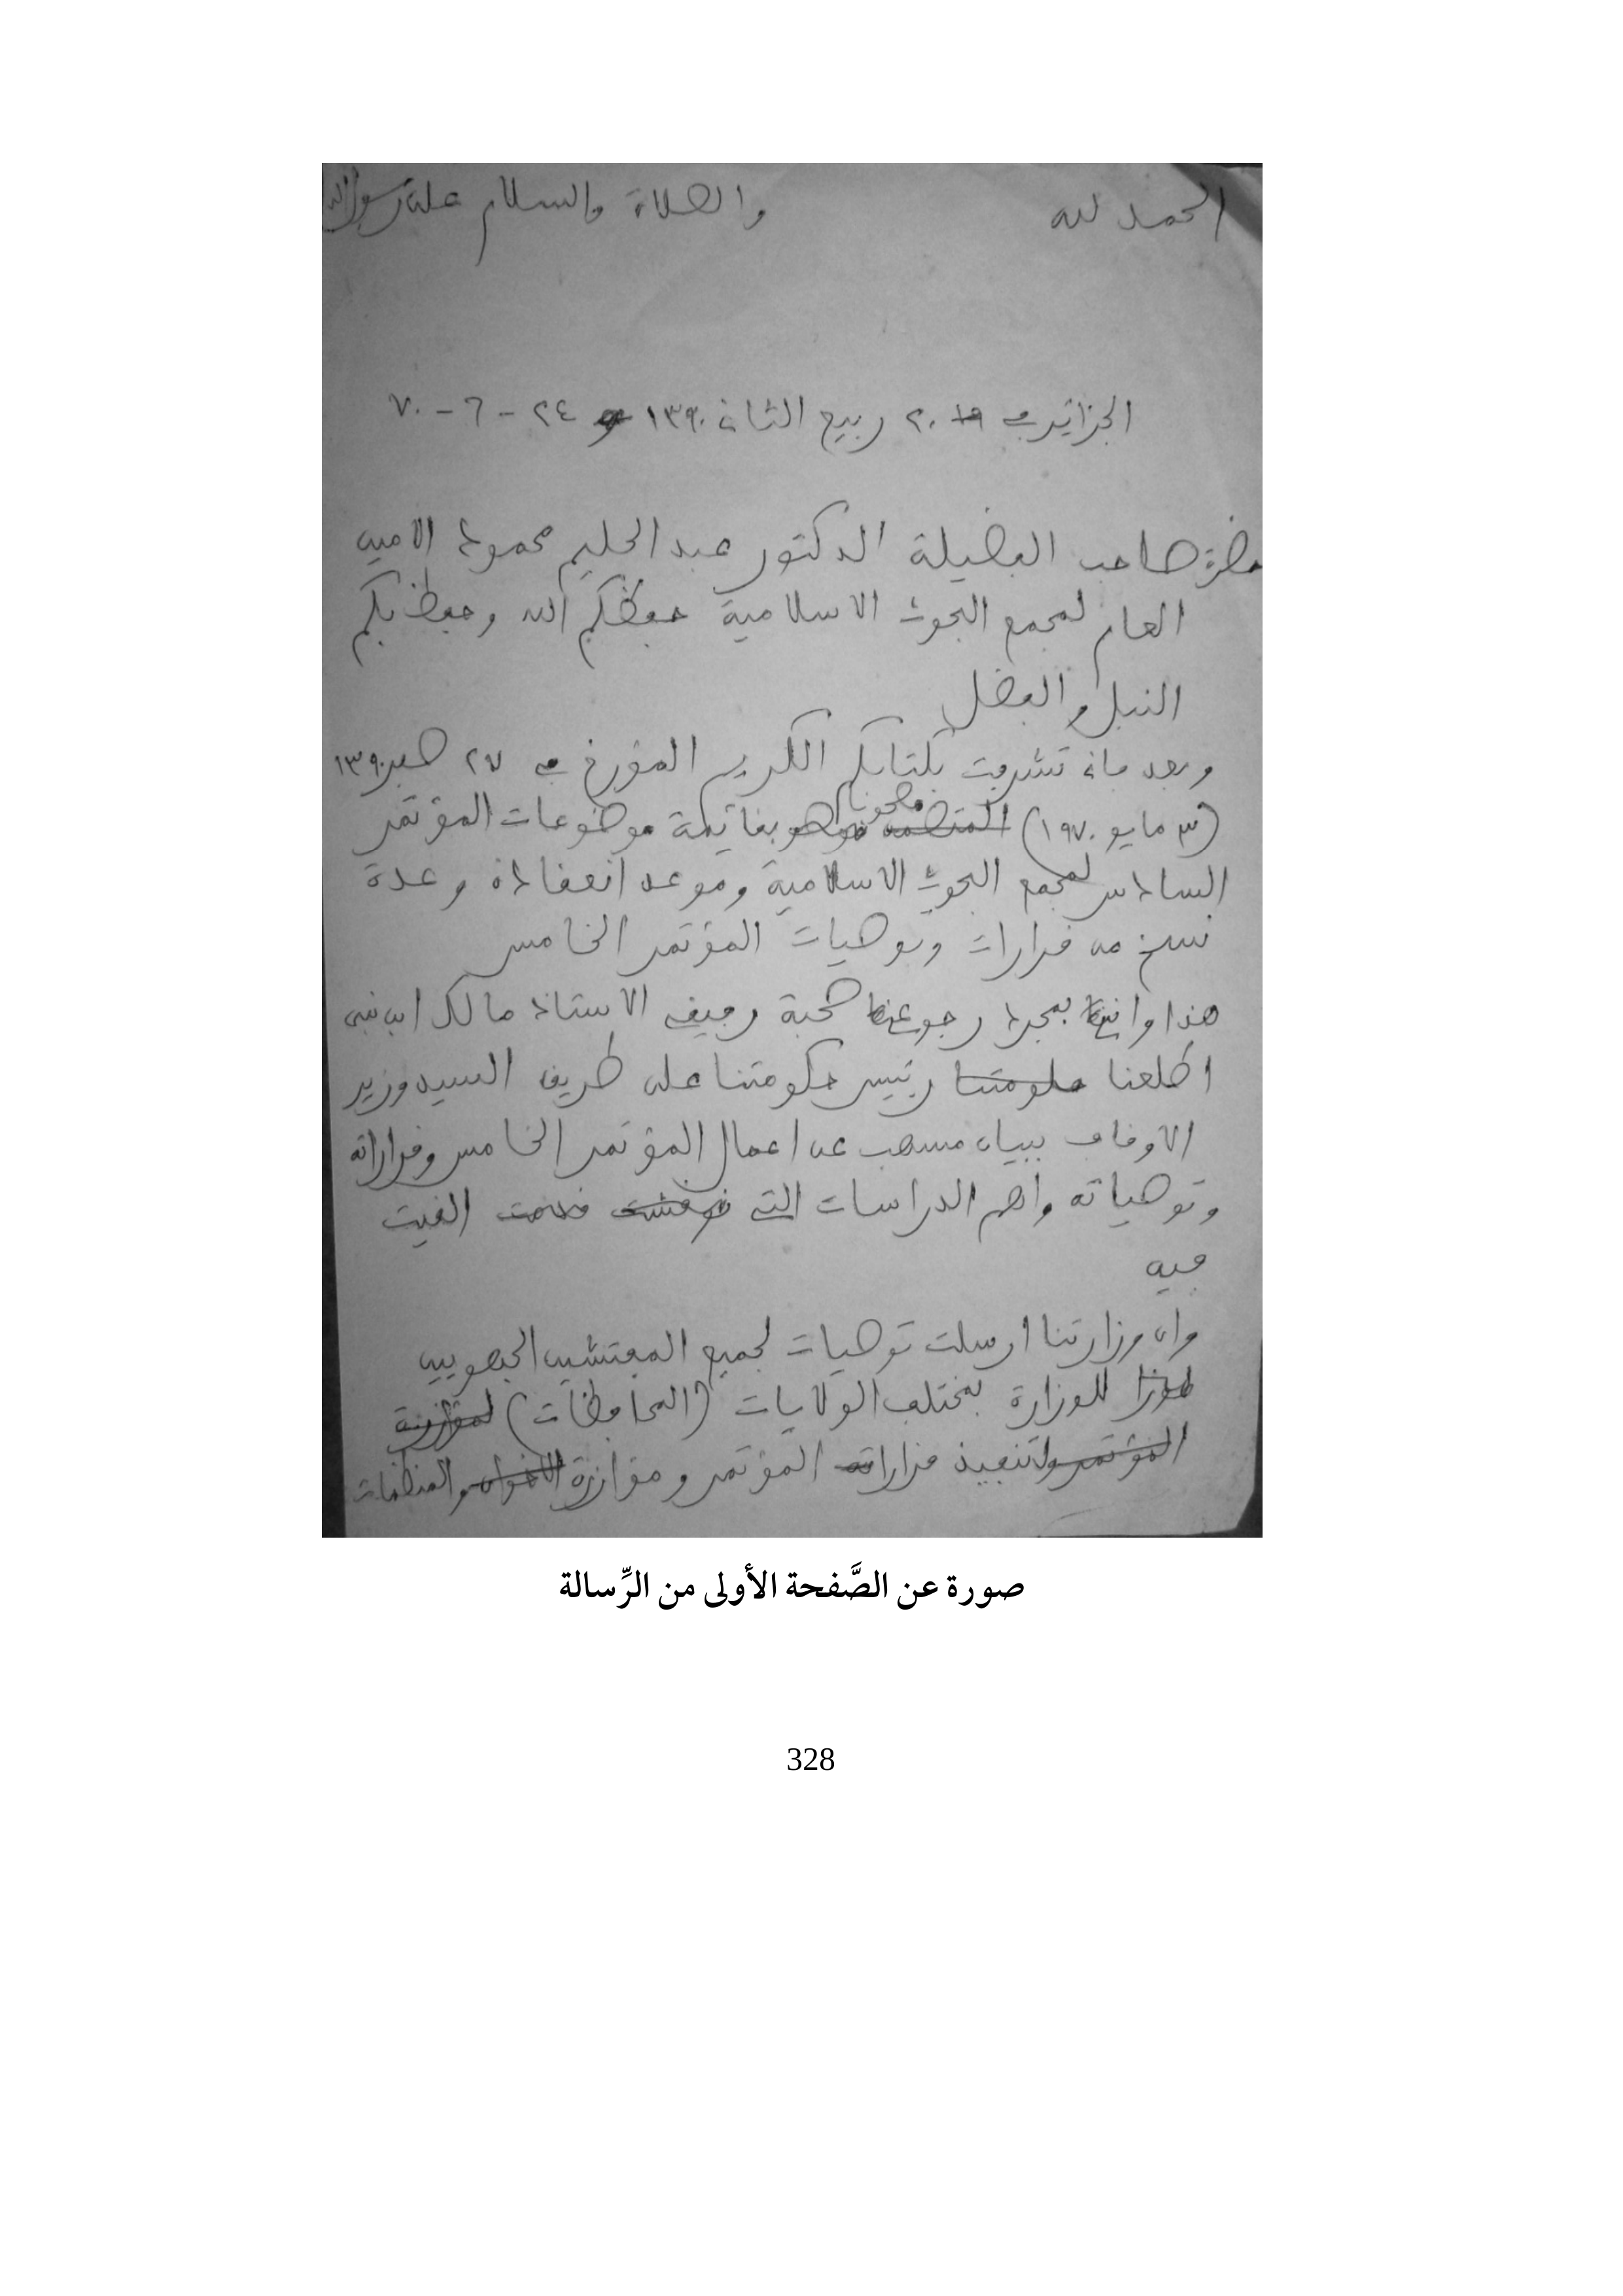 الحمد لله والصلاة والسلام على رسول الله
الجزائر في ٢٠ ربيع الثاني ١٣٩٠ ٢٤ - ٦ - ٧٠
حضرة صاحب الفضيلة الدكتور عبد الحليم محمود الامين
العام لمجمع البحوث الاسلامية حفظكم الله وحفظ بكم
النبل والفضل
وبعد فاني تشرفت بكتابكم الكريم المؤرخ في ٢٧ صفر ١٣٩٠
(٣ مايو ١٩٧٠) المتضمن مصحوبا بقائمة موضوعات المؤتمر
السادس لمجمع البحوث الاسلامية وموعد انعقاده وعدة
نسخ من قرارات وتوصيات المؤتمر الخامس
هذا واننا بمجرد رجوعنا صحبة رفيقي الاستاذ مالك ابن نبي
اطلعنا حكومتنا رئيس حكومتنا على طريق السيد وزير
الاوقاف ببيان مسهب عن اعمال المؤتمر الخامس وقراراته
وتوصياته واهم الدراسات التي نوقشت قدمت القيت
فيه
وان وزارتنا ارسلت توصيات لجميع المفتشين الجهويين
للوزارة بمختلف الولايات (المحافظات) لمؤازرة
المؤتمر ولتنفيذ قراراته المؤتمر ومؤازرة الاخوان والمنظمات
صورة عن الصَّفحة الأولى من الرِّسالة
328